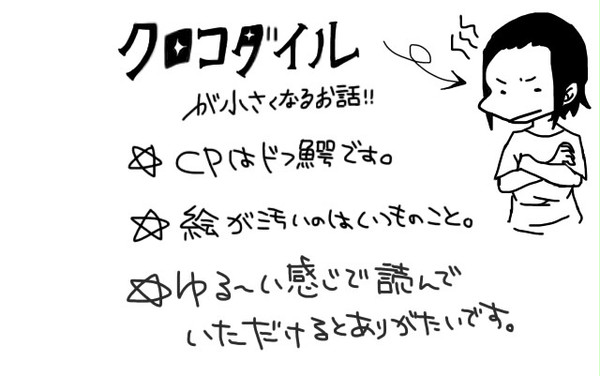 クロコダイル
が小さくなるお話!!
☆ CPはドフ鰐です。
☆ 絵が汚いのはいつものこと。
☆ ゆる〜い感じで読んで
いただけるとありがたいです。